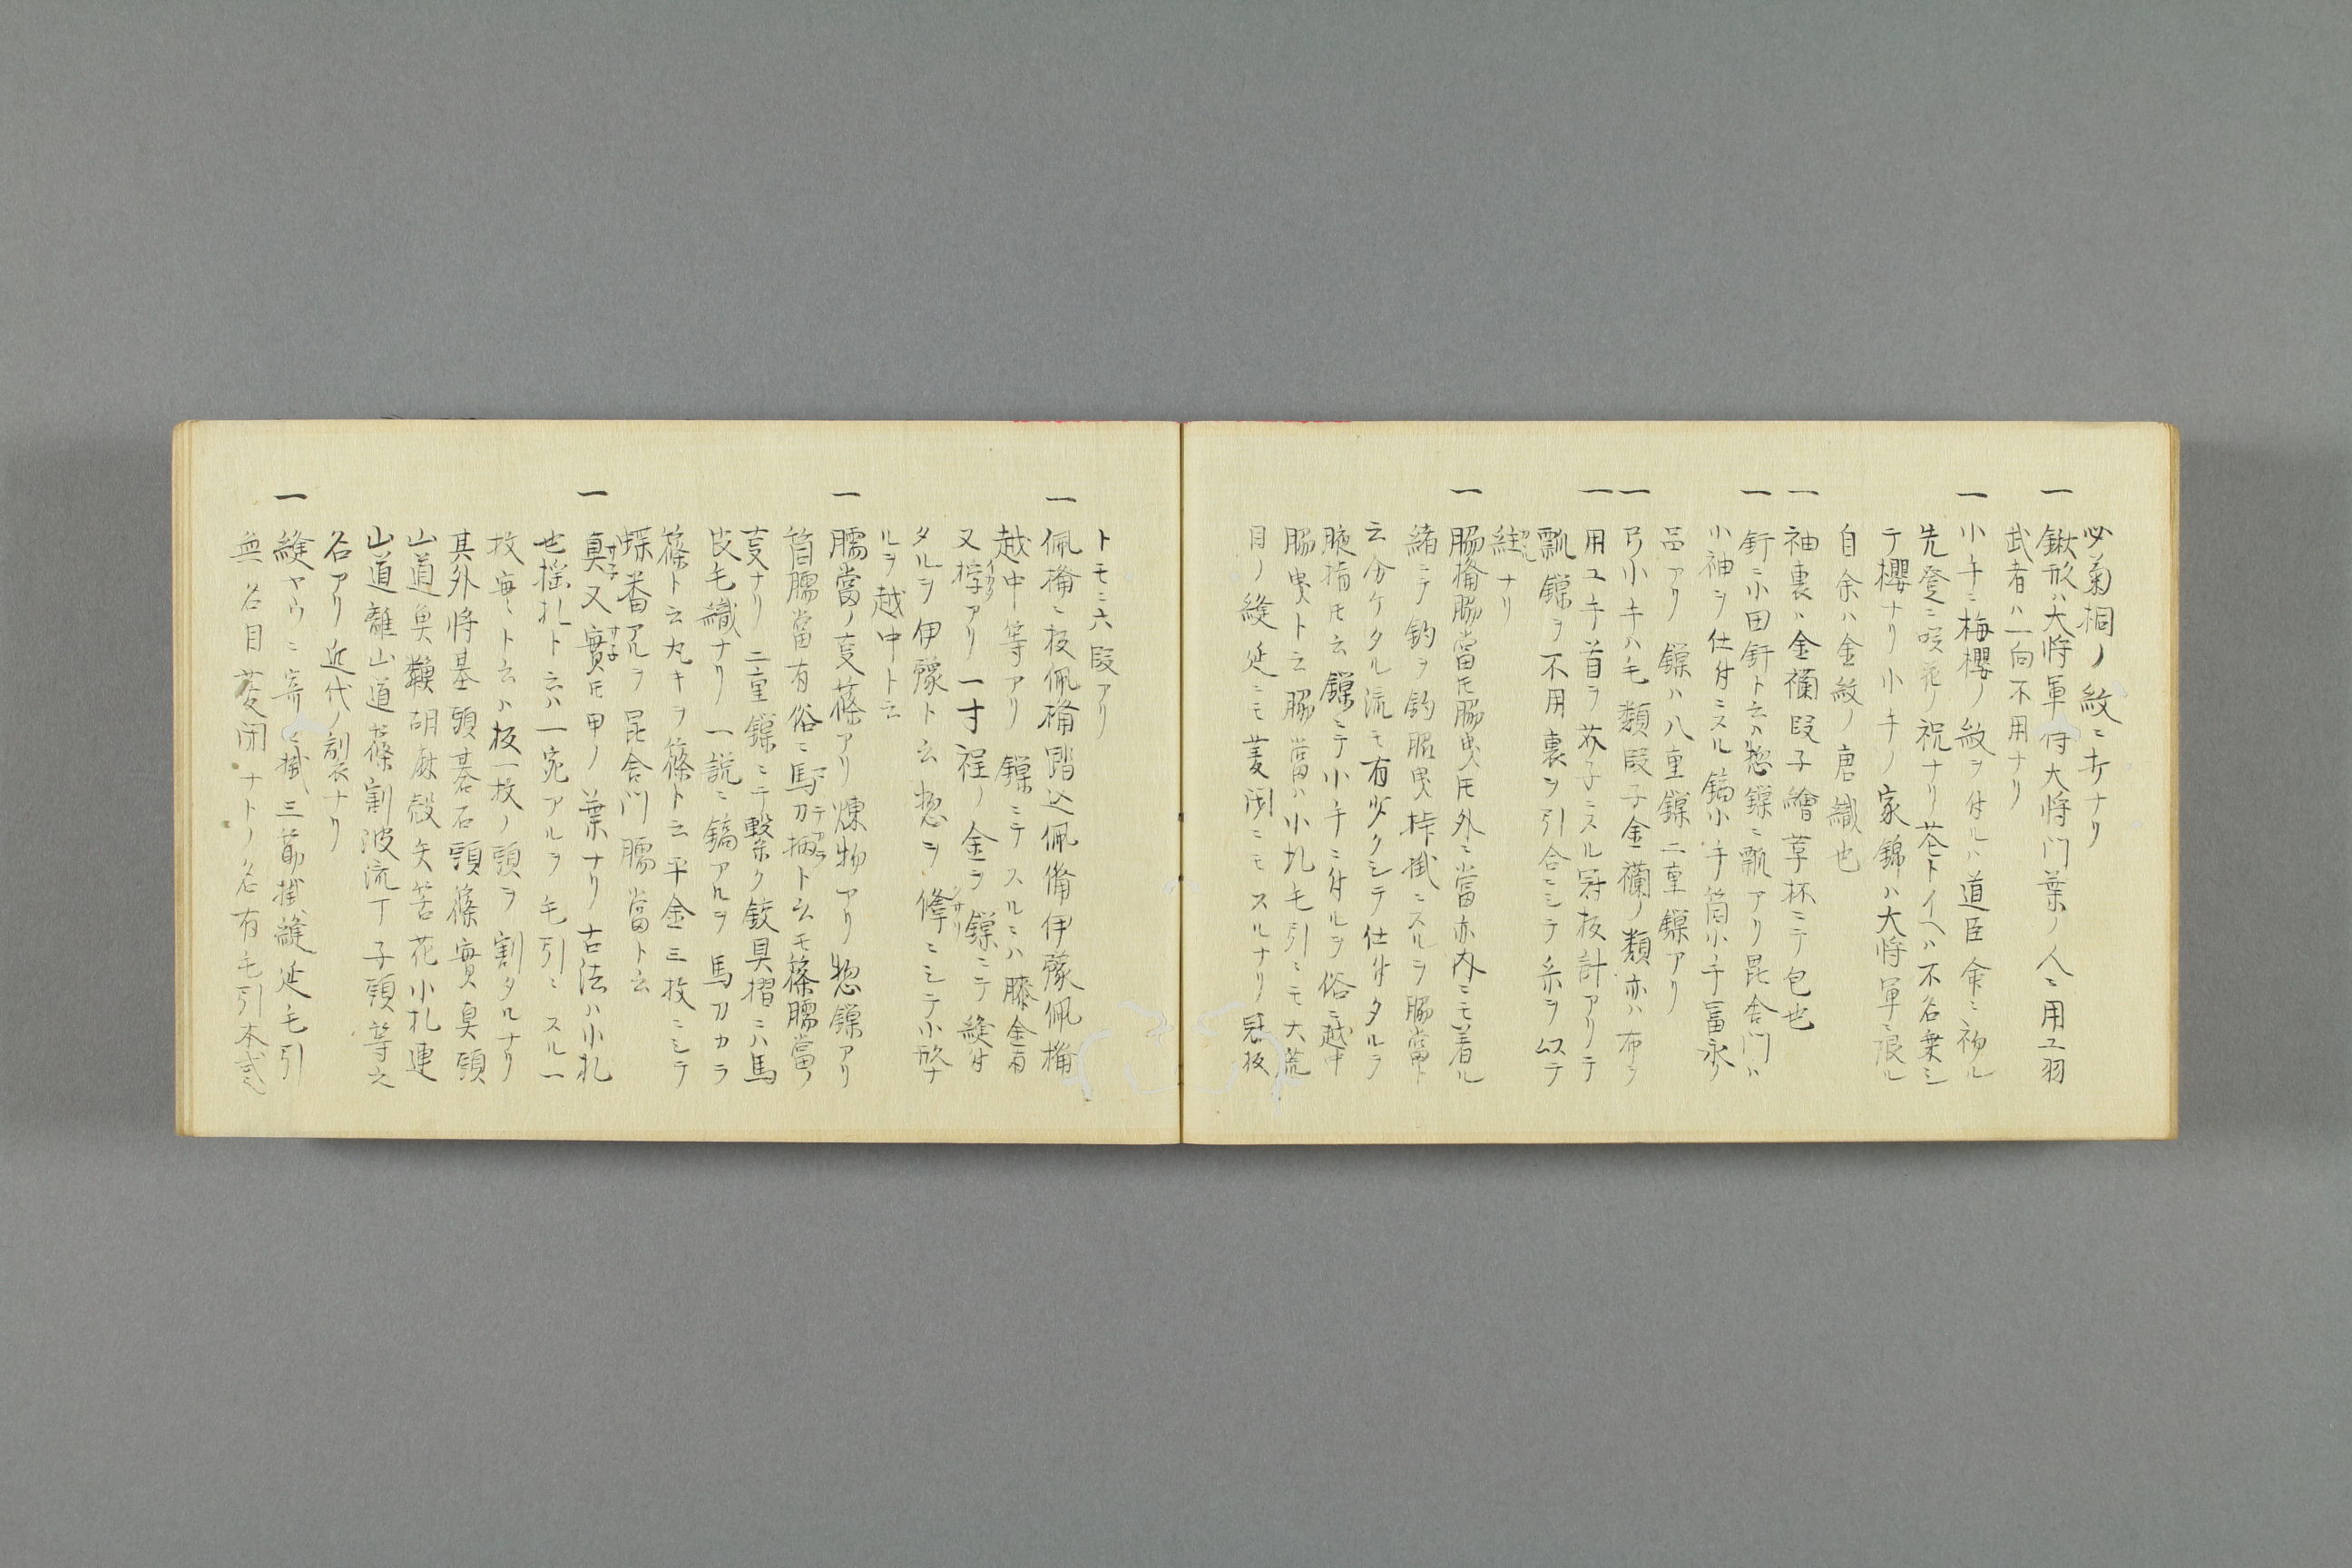 必菊桐ノ紋ニ打ナリ
一 鍬形ハ大将軍侍大将門葉ノ人ニ用ユ羽
武者ハ一向不用ナリ
一 小手ニ梅櫻ノ紋ヲ付ルハ道臣命ニ初ル
先登ニ咲花ノ祝ナリ花トイヘハ不名乗シ
テ櫻ナリ小手ノ家錦ハ大将軍ニ限ル
自余ハ金紋ノ唐織也
一 袖裏ハ金襴段子繪草杯ニテ包也
一 釬ニ小田釬ト云ハ惣鏁ニ瓢アリ昆舎門ハ
小袖ヲ仕付ニスル鎬小手筒小手冨永ノ
品アリ鏁ハ八重鏁二重鏁アリ
一 弓小手ハ毛類段子金襴ノ類亦ハ布ヲ
用ユ手首ヲ芥子ニスル冠板計アリテ
一 瓢鏁ヲ不用裏ヲ引合ニシテ糸ヲ以テ
絓ナリ
一 脇楯脇當トモ脇曳トモ外ニ當亦内ニモ着ル
緒ニテ釣ヲ釣脇曳桛掛ニスルヲ脇當ト
云分ケタル流モ有少クシテ仕付タルヲ
腋指トモ云鏁ニテ小手ニ付ルヲ俗ニ越中
脇曳ト云脇當ハ小札毛引ニモ大荒
目ノ縫延ニモ菱閉ニモスルナリ冠板
トモニ六段アリ
一 佩楯ニ板佩楯踏込佩楯伊豫佩楯
越中等アリ鏁ニテスルニハ膝金有
又桴アリ一寸程ノ金ヲ鏁ニテ縫付
タルヲ伊豫ト云惣ヲ ニシテ小
ルヲ越中ト云
一 臑當ノ叓篠アリ煉物アリ惣鏁アリ
筒臑當有俗ニ馬刀柄ト云モ篠臑當ノ
叓ナリ二重鏁ニテ繋ク鉸具摺ニハ馬
皮毛織ナリ一説ニ鎬アルヲ馬刀カラ
篠ト云丸キヲ篠ト云平金三枚ニシテ
蝶番アルヲ昆舎門臑當ト云
一 真又實トモ甲ノ葉ナリ古法ハ小札
也揺札ト云ハ一宛アルヲ毛引ニスル一
枚実ト云ハ板一枚ノ頭ヲ割タルナリ
其外将棊頭碁石頭篠實臭頭
山道魚鱗胡麻殻矢筈花小札連
山道離山道篠割波流丁子頭等之
名アリ近代ノ製ナリ
一 縫ヤウニ寄 掛三莭掛縫延毛引
無名目菱閉ナトノ名有毛引本式